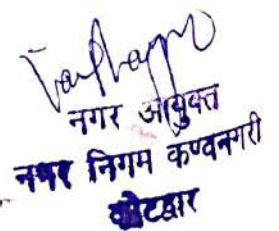 नगर आयुक्त
नगर निगम कण्वनगरी
कोटद्वार